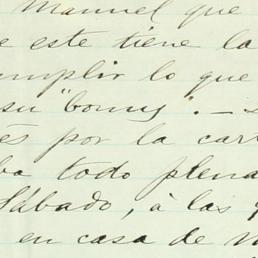 Manuel que
este tiene la
mplir lo que
su "bomy". —
és por la cart
ba todo plena
Sábado, á las
en casa de